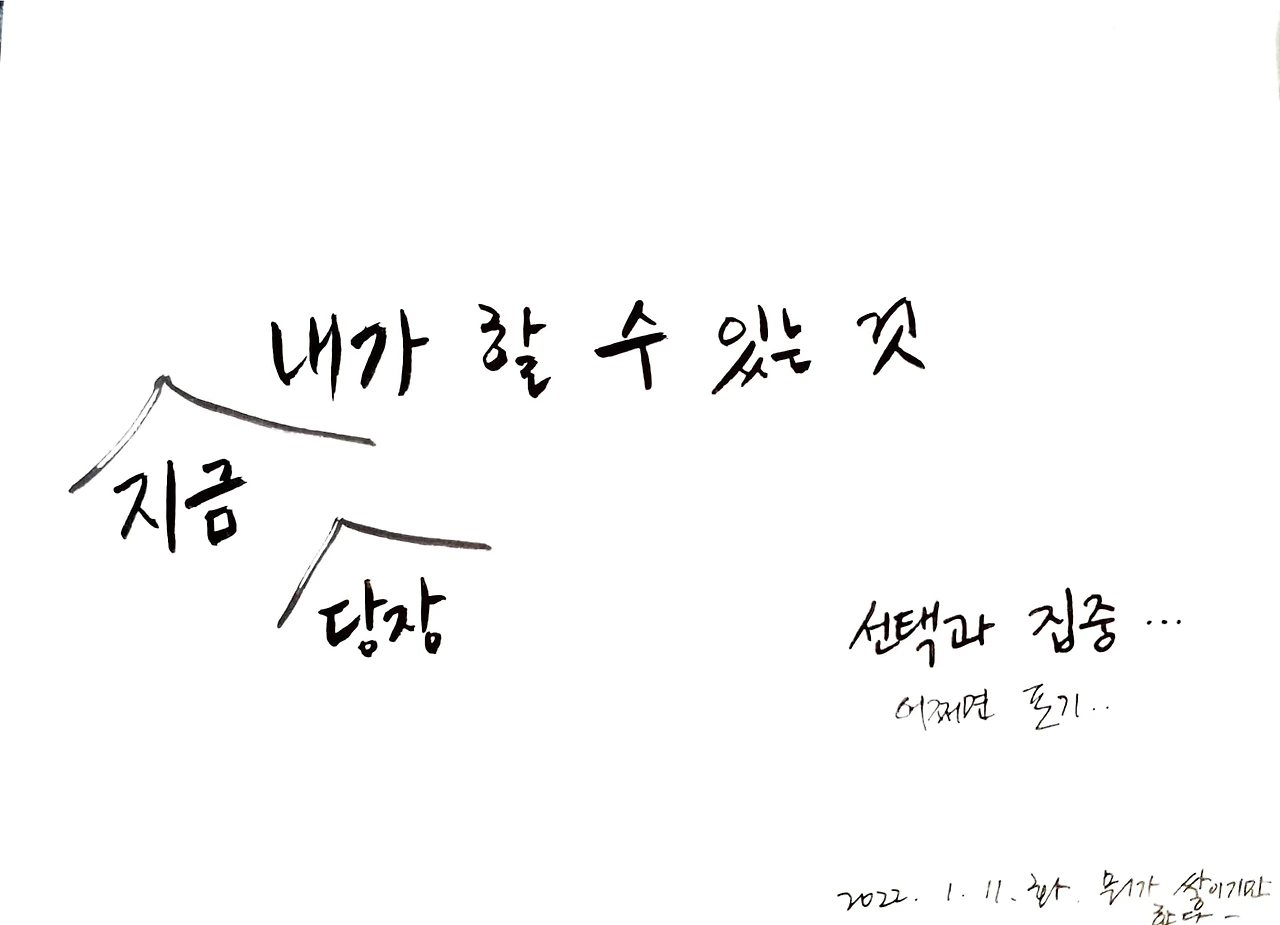 내가 할 수 있는 것
지금
당장
선택과 집중...
어쩌면 포기..
2022. 1. 11. 화. 뭐가 쌓이기만
한다-